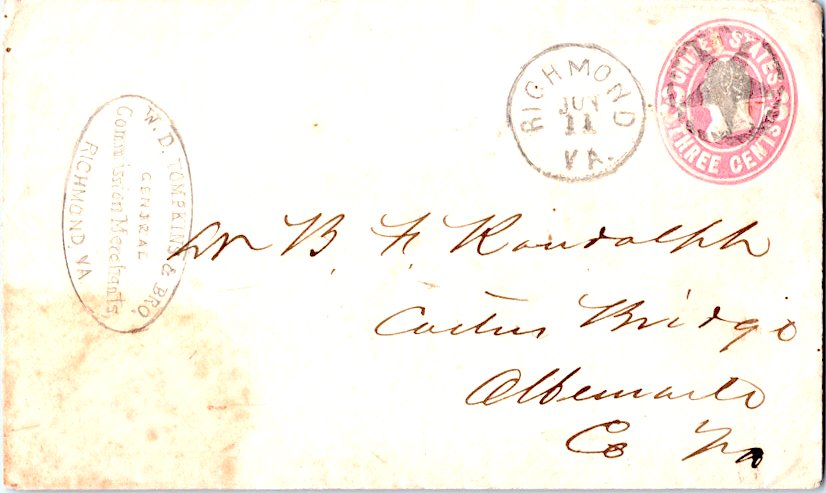 W. D. TOMPKINS & BRO.
GENERAL
Commission Merchants,
RICHMOND VA
RICHMOND
JUN
11
VA.
UNITED STATES
THREE CENTS
Dr B. F. Randolph
Carters Bridge
Albemarle
Co Va